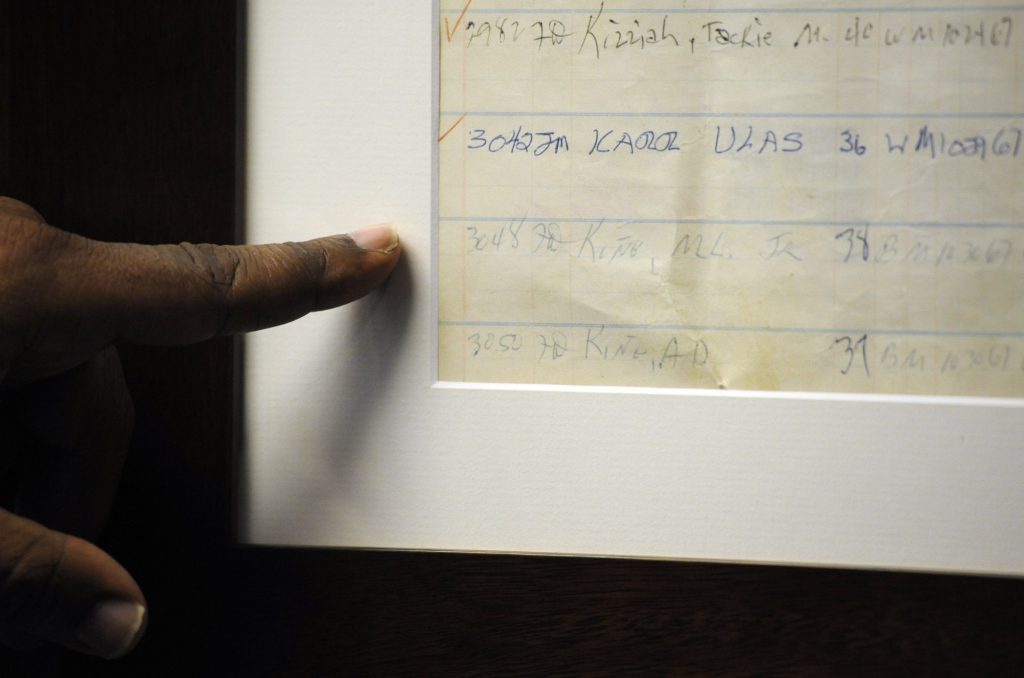 2982 JD Kizziah, Jackie M. 40 W M 102467
3042 JM KAROZ ULAS 36 W M 102967
3048 JD King, M.L. Jr 38 B M 103067
3050 JD King, A D 37 B M 103067